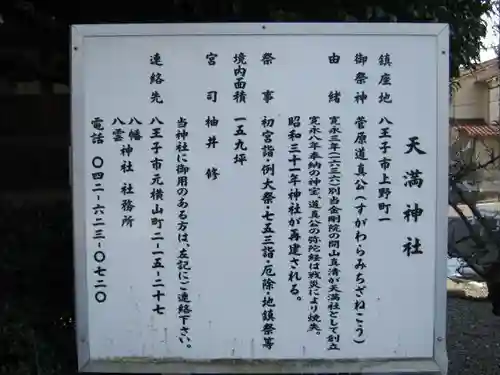 天満神社
鎮座地 八王子市上野町一
御祭神 菅原道真公(すがわらみちざねこう)
由緒 寛永三年(一六二六)別当金剛院の開山真清が天満社として創立
寛永八年奉納の神宝、道真公の弥陀経は戦災により焼失。
昭和三十一年神社が再建される。
祭事 初宮詣・例大祭・七五三詣・厄除・地鎮祭等
境内面積 一五九坪
宮司 柚井 修
当神社に御用のある方は、左記にご連絡下さい。
連絡先 八王子市元横山町二-一五-二七
八幡
八雲 神社 社務所
電話 〇四二-六二三-〇七二〇